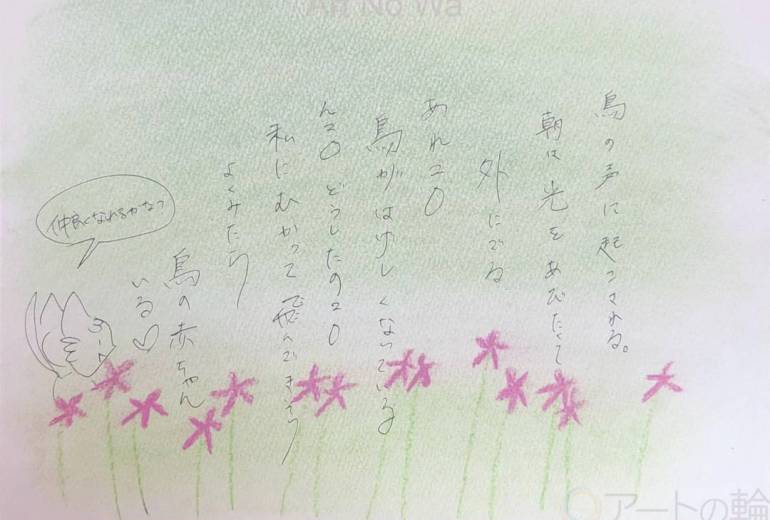 鳥の声に起こされる。
朝は光をあびたくて
外にでる
あれ?
鳥がはげしくないている
ん? どうしたの?
私にむかって飛んできそう
よくみたら
鳥の赤ちゃん
いる♡
仲良くなれるかなっ
Art No Wa
アートの輪